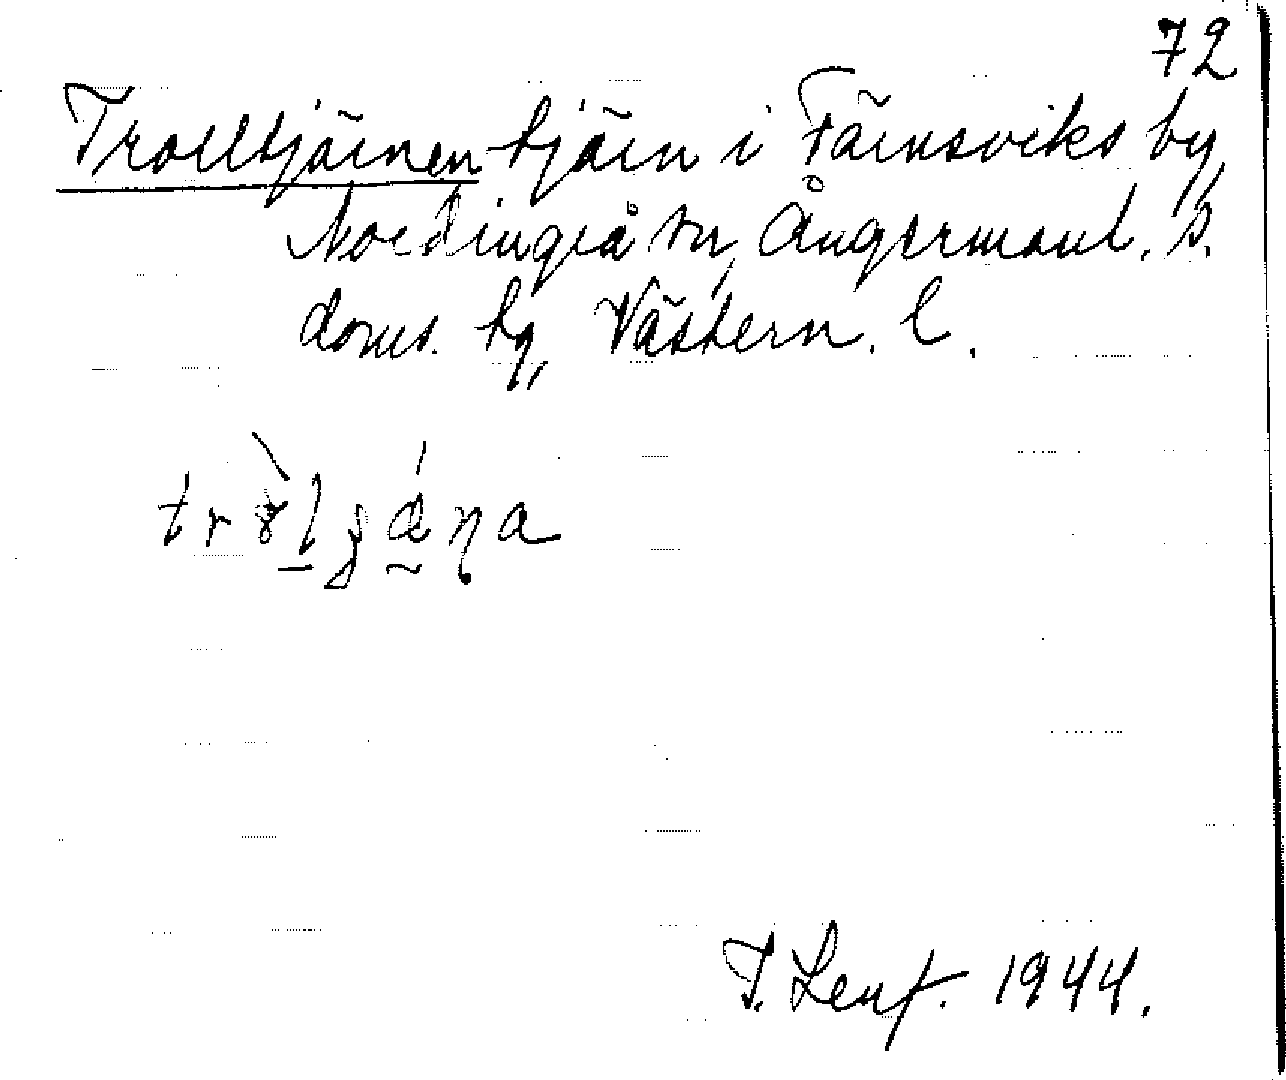 72
Trolltjärnen tjärn i Färnsviks by,
Nordingrå sn, Ångermanl. s.
doms. tg, Västern. l.
1944.